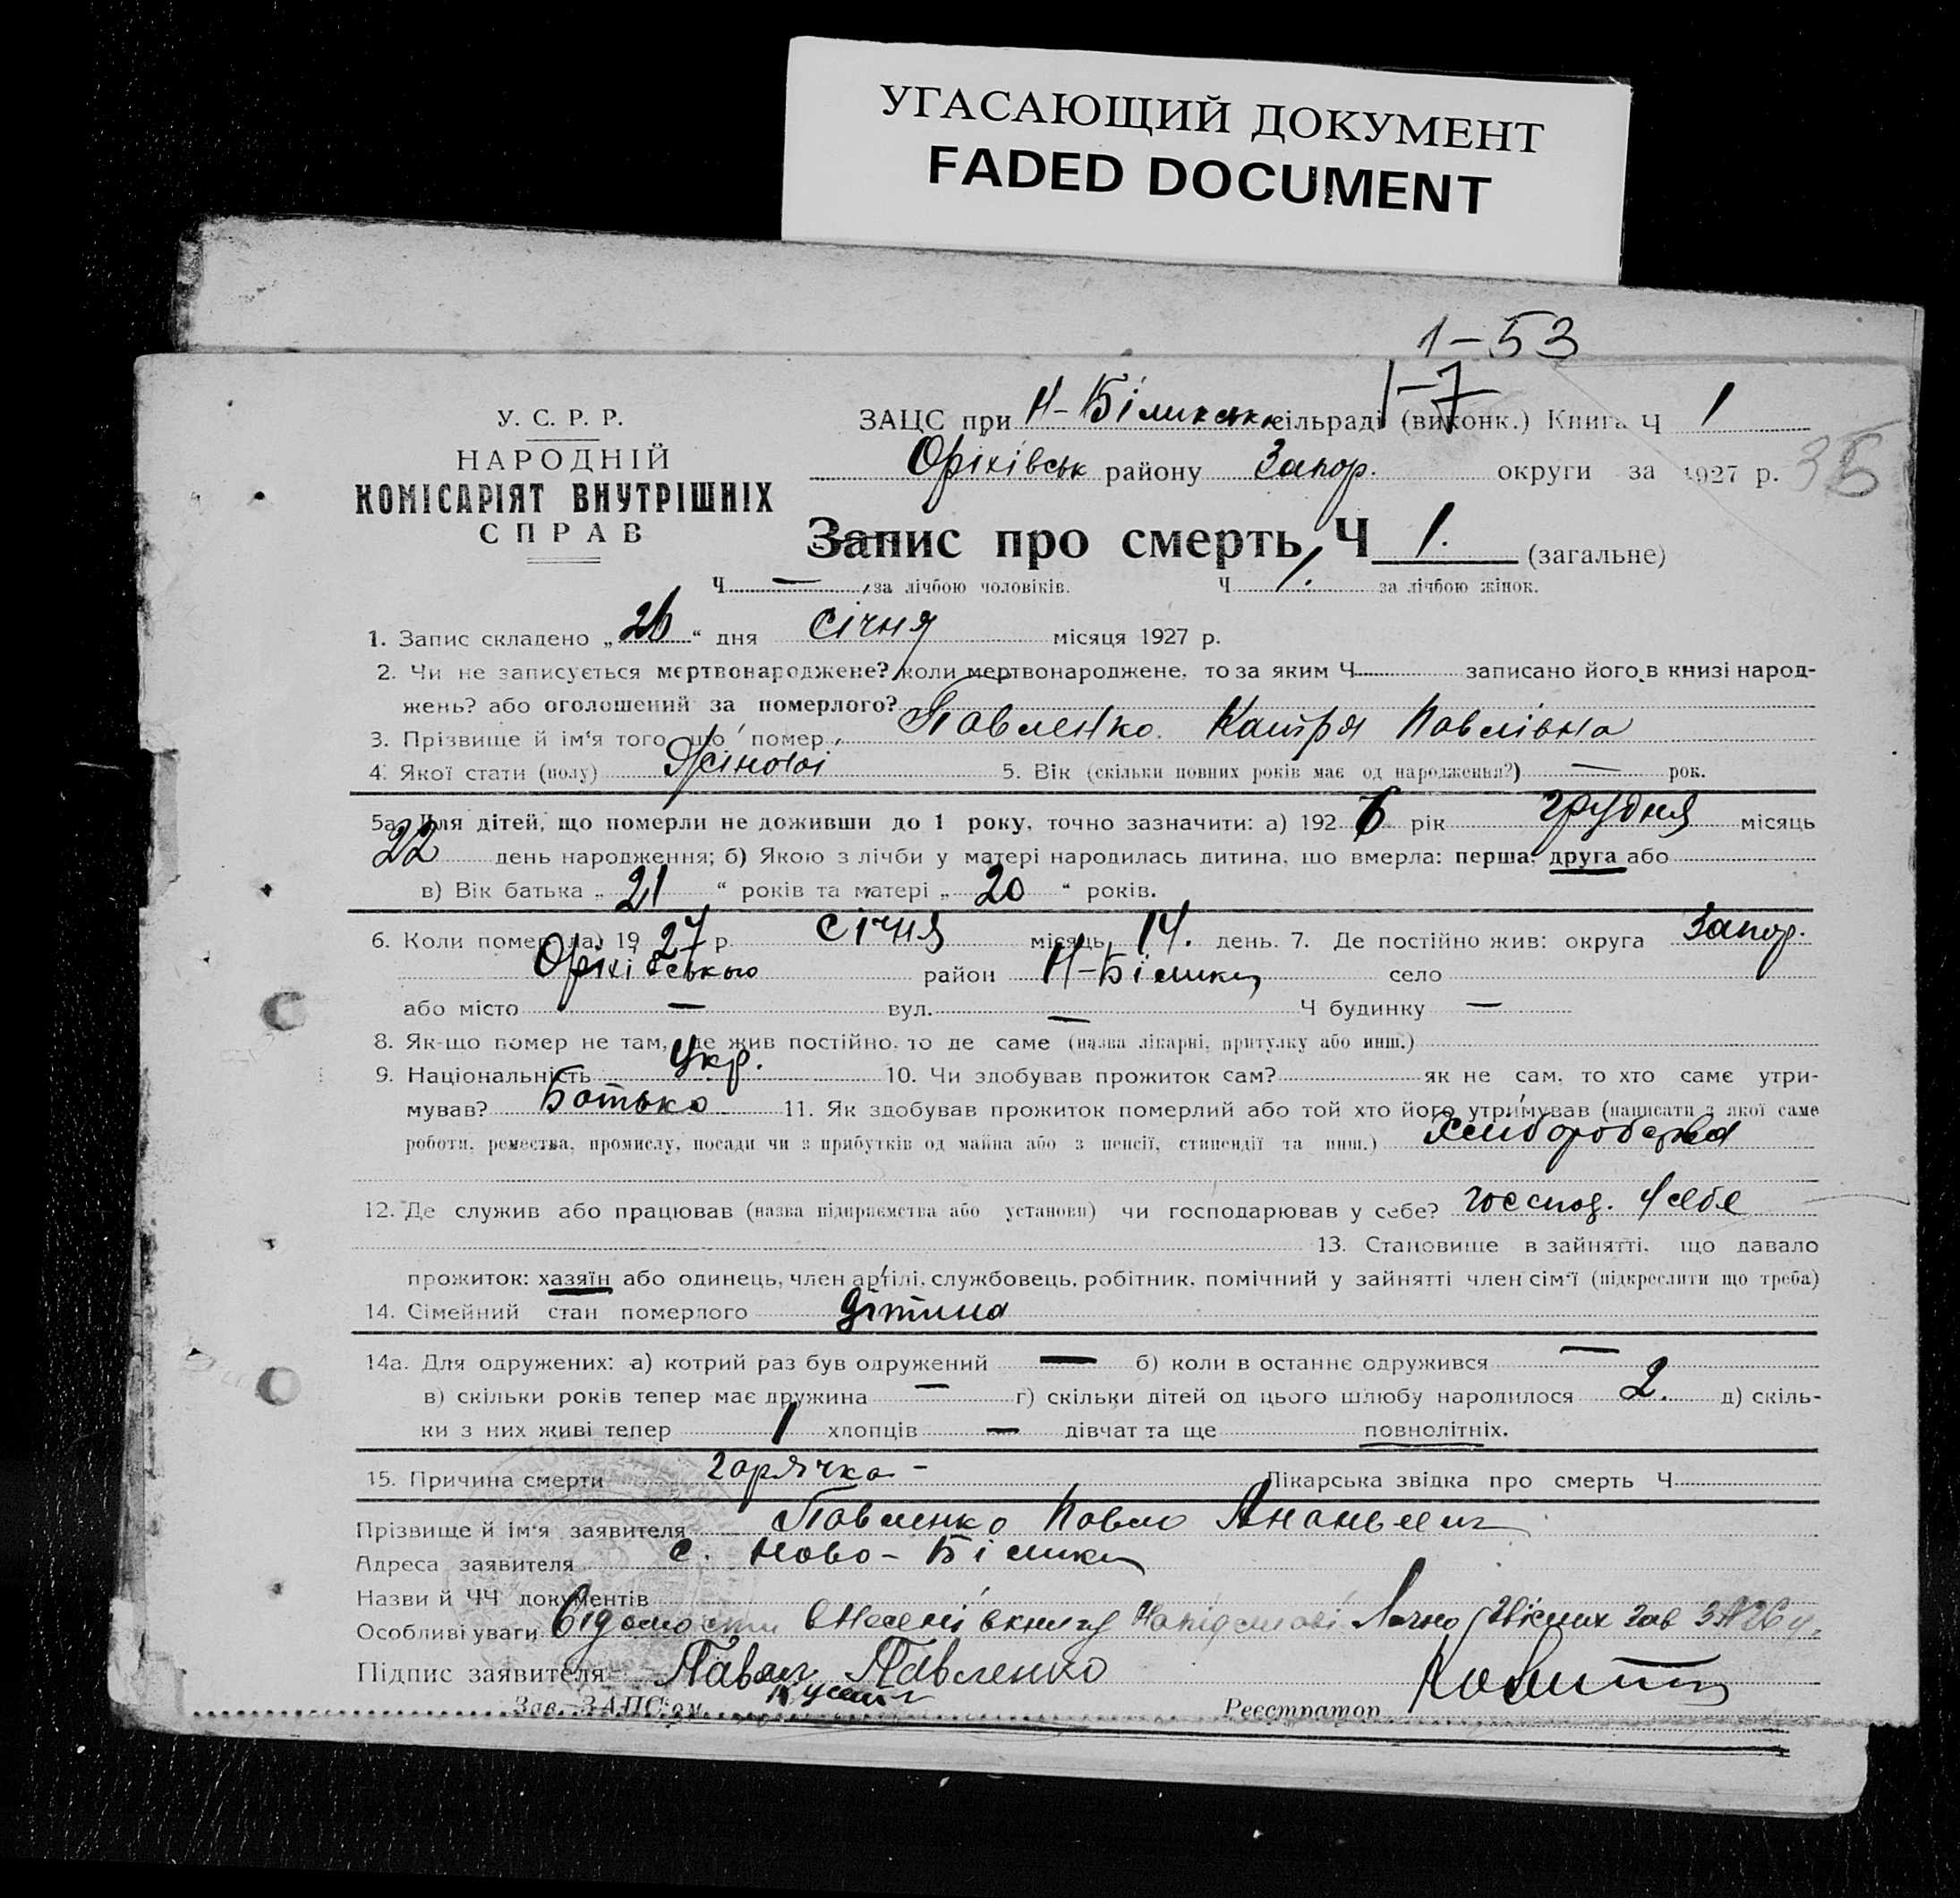 УГАСАЮЩИЙ ДОКУМЕНТ
FADED DOCUMENT
1-53
1-7
У. С. Р. Р.
НАРОДНІЙ
КОМІСАРІЯТ ВНУТРІШНІХ
СПРАВ
ЗАЦС при Н-Біликськ сільраді (виконк.) Книга Ч 1
Оріхівськ району Запор. округи за 1927 р. 35
Запис про смерть Ч 1. (загальне)
Ч — за лічбою чоловіків. Ч 1. за лічбою жінок.
1. Запис складено „26“ дня січня місяця 1927 р.
2. Чи не записується мертвонароджене? коли мертвонароджене, то за яким Ч записано його в книзі народ-
жень? або оголошений за померлого?
3. Прізвище й ім'я того, що помер Павленко Катря Павлівна
4. Якої стати (полу) Жіночої 5. Вік (скільки повних років має од народження?) — рок.
5а. Для дітей, що померли не доживши до 1 року, точно зазначити: а) 1926 рік грудня місяць
22 день народження; б) Якою з лічби у матері народилась дитина, що вмерла: перша, друга або
в) Вік батька „21“ років та матері „20“ років.
6. Коли помер(ла) 1927 р. січня місяць 14. день. 7. Де постійно жив: округа Запор.
Оріхівського район Н-Білики село
або місто — вул. — Ч будинку —
8. Як-що помер не там, де жив постійно, то де саме (назва лікарні, притулку або инш.)
9. Національність Укр. 10. Чи здобував прожиток сам? як не сам, то хто саме утри-
мував? Батько 11. Як здобував прожиток померлий або той хто його утримував (написати з якої саме
роботи, ремества, промислу, посади чи з прибутків од майна або з пенсії, стипендії та инш.) Хліборобства
12. Де служив або працював (назва підприємства або установи) чи господарював у себе? господ. у себе
13. Становище в зайнятті, що давало
прожиток: хазяїн або одинець, член артілі, службовець, робітник, помічний у зайнятті член сім'ї (підкреслити що треба)
14. Сімейний стан померлого дітина
14а. Для одружених: а) котрий раз був одружений — б) коли в останнє одружився —
в) скільки років тепер має дружина — г) скільки дітей од цього шлюбу народилося 2. д) скіль-
ки з них живі тепер 1 хлопців — дівчат та ще повнолітніх.
15. Причина смерти гарячка - Лікарська звідка про смерть Ч
Прізвище й ім'я заявителя Павленко Павло Ананьевич
Адреса заявителя с. Ново-Білики
Назви й ЧЧ документів
Особливі уваги Відомости внесені в книгу на підставі
Підпис заявителя Павел Павленко
Зав. ЗАЦС'ом Реєстратор